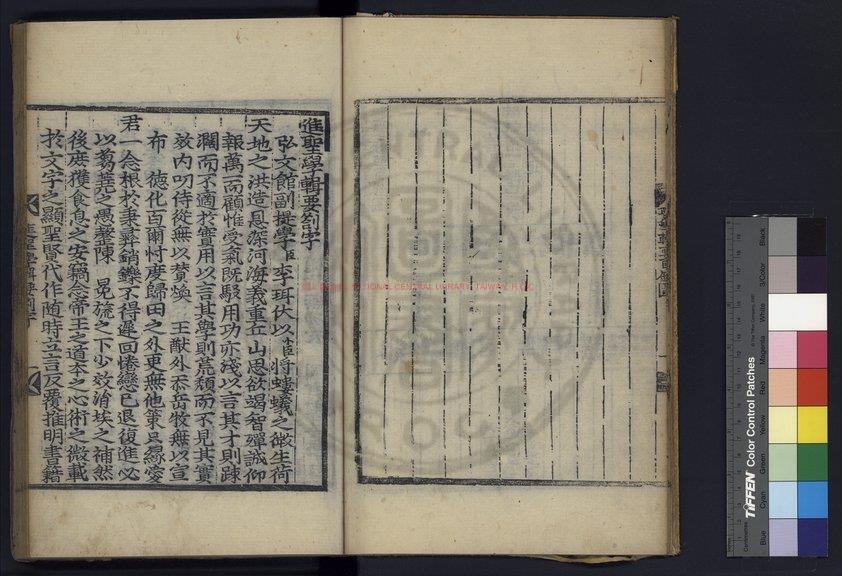 進聖學輯要劄子
弘文館副提學臣李珥伏以臣將螻蟻之微生荷
天地之洪造恩深河海義重丘山思欲竭智殫誠仰
報萬一而顧惟受氣旣駁用功亦淺以言其才則疎
濶而不適於實用以言其學則荒頹而不見其實
效內叨侍從無以賛煥 王猷外忝岳牧無以宣
布 德化百爾忖度歸田之外更無他策只緣愛
君一念根於秉彛銷鑠不得遲回倦戀已退復進必
以蒭蕘之愚罄陳 冕旒之下少效涓埃之補然
後庶獲食息之安竊念帝王之道本之心術之微載
於文字之顯聖賢代作隨時立言反覆推明書籍
NATIONAL CENTRAL LIBRARY, TAIWAN, R.O.C.
TIFFEN Color Control Patches
Blue Cyan Green Yellow Red Magenta White 3/Color Black
Centimetres